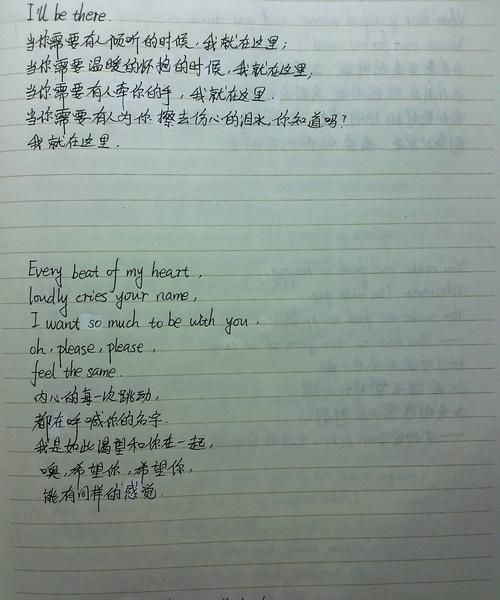 I'll be there.
当你需要有人倾听的时候，我就在这里；
当你需要温暖的怀抱的时候，我就在这里；
当你需要有人牵你的手，我就在这里．
当你需要有人为你擦去伤心的泪水，你知道吗？
我就在这里．
Every beat of my heart,
loudly cries your name,
I want so much to be with you,
oh, please, please,
feel the same.
内心的每一次跳动，
都在呼喊你的名字．
我是如此渴望和你在一起，
噢，希望你，希望你，
能有同样的感觉．